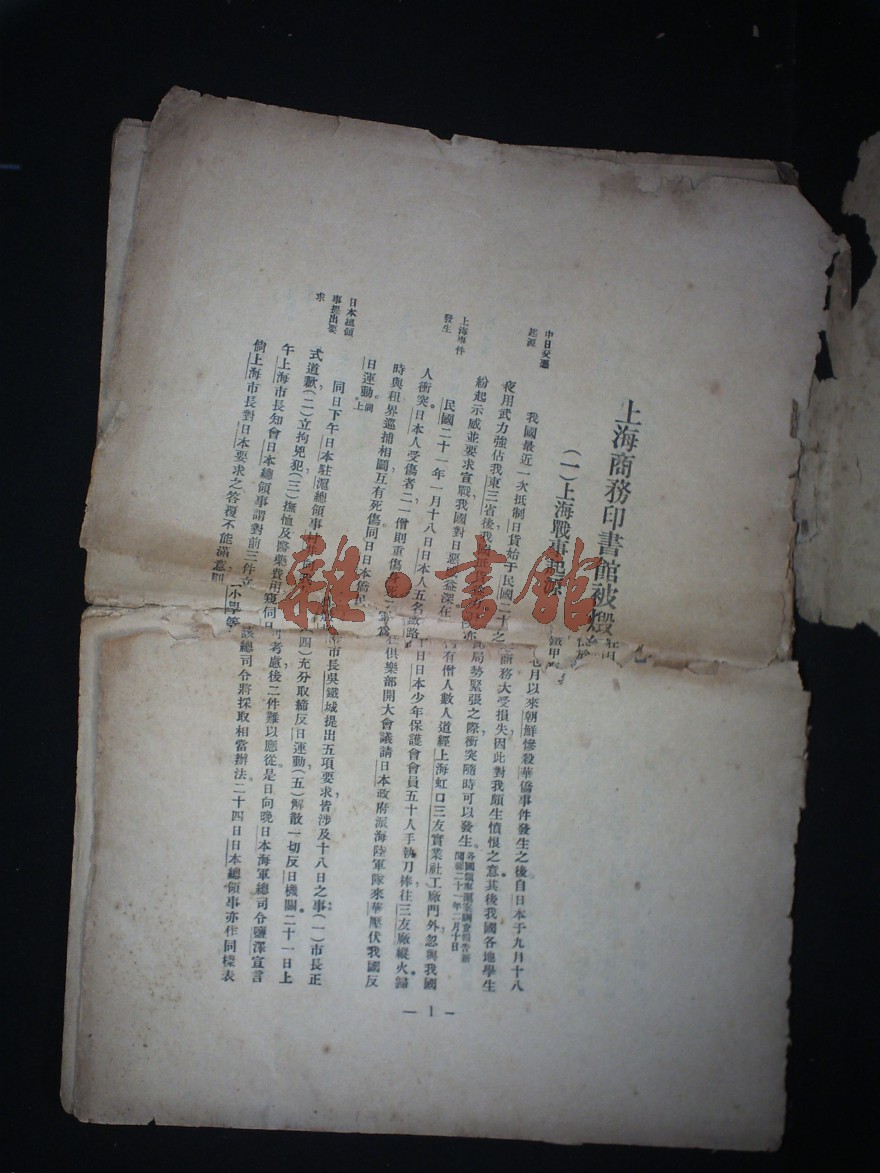 上海商務印書館被燬
(一)上海戰事起源
中日交涉
起源
我國最近一次抵制日貨始于民國二十
七月以來朝鮮慘殺華僑事件發生之後自日本于九月十八
夜用武力強佔我東三省後我
商務大受損失因此對我頗生憤恨之意其後我國各地學生
紛起示威並要求宣戰我國對日惡
益深在
局勢緊張之際衝突隨時可以發生。
各國領事
調查報告
二十一年二月十日
上海事件
發生
民國二十一年一月十八日日本人五名
有僧人數人道經上海虹口三友實業社工廠門外忽與我國
人衝突。日本人受傷者二一僧則重傷
日日本少年保護會會員五十人手執刀棒往三友廠縱火歸
時與租界巡捕相鬬互有死傷同日日本僑
俱樂部開大會議請日本政府派海陸軍隊來華壓伏我國反
日運動。同上
日本總領
事提出要
求
同日下午日本駐滬總領事村井
市長吳鐵城提出五項要求皆涉及十八日之事(一)市長正
式道歉(二)立拘兇犯(三)撫恤及醫藥費用
(四)充分取締反日運動(五)解散一切反日機關二十一日上
午上海市長知會日本總領事謂對前三件立
可考慮後二件難以應從是日向晚日本海軍總司令鹽澤宣言
倘上海市長對日本要求之答複不能滿意則
該總司令將採取相當辦法。二十四日日本總領事亦作同樣表
— 1 —
雜·書館